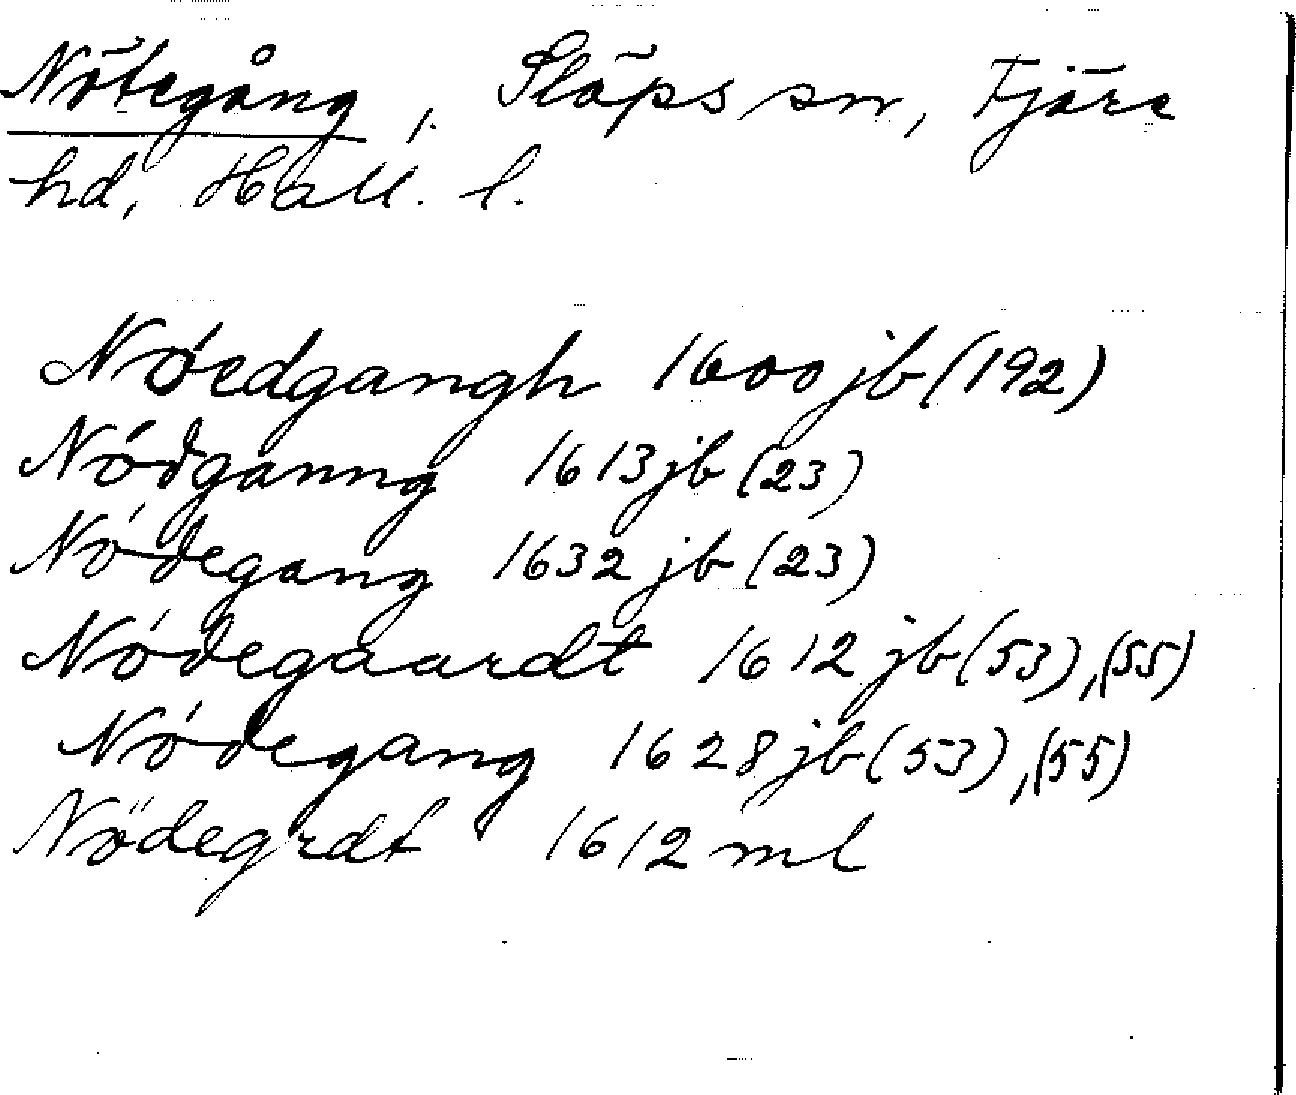 Nötegång, Släps sn, Fjäre
hd, Hall. l.
Nøedgangh 1600 jb (192)
Nódganng 1613 jb (23)
Nódegang 1632 jb (23)
Nódegaardt 1612 jb (53), (55)
Nódegang 1628 jb (53), (55)
Nödegrdt 1612 ml